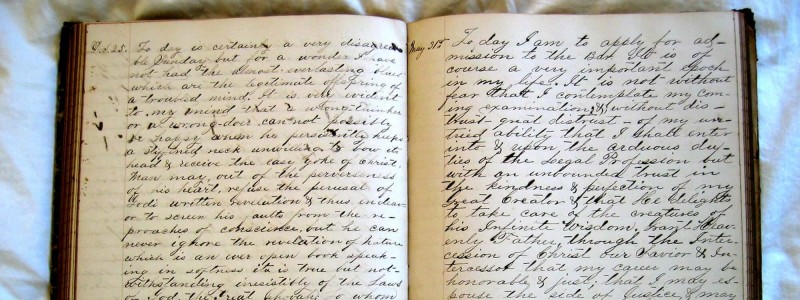 Oct. 25. To day is certainly a very disagreea-
ble Sunday but for a wonder I have
not had the almost everlasting blues
which are the legitimate offspring of
a troubled mind. It is very evident
to my mind that a wrong-thinker
or a wrong-doer can not possibly
be happy when he persistently keeps
a stiffened neck unwilling to bow its
head & receive the easy yoke of Christ.
Man may, out of the perverseness
of his heart, refuse the perusal of
God's written revelation & thus endeav-
or to screen his faults from the re-
proaches of conscience, but he can
never ignore the revelation of nature
which is an ever open book speak-
ing in softness it is true but not-
withstanding irresistibly of the Laws
of God, the great Jehovah, to whom
May 31st To day I am to apply for ad-
mission to the Bar. It is of
course a very important epoch
in my life. It is not without
fear that I contemplate my com-
ing examination; & without dis-
trust - great distrust - of my un-
tried ability that I shall enter
into & upon the arduous du-
ties of the Legal Profession but
with an unbounded trust in
the kindness & perfection of my
Great Creator & that He delights
to take care of the creatures of
his Infinite Wisdom. Grant Heav-
enly Father, through the Inter-
cession of Christ our Savior & In-
tercessor that my career may be
honorable & just; that I may es-
pouse the side of Justice & may